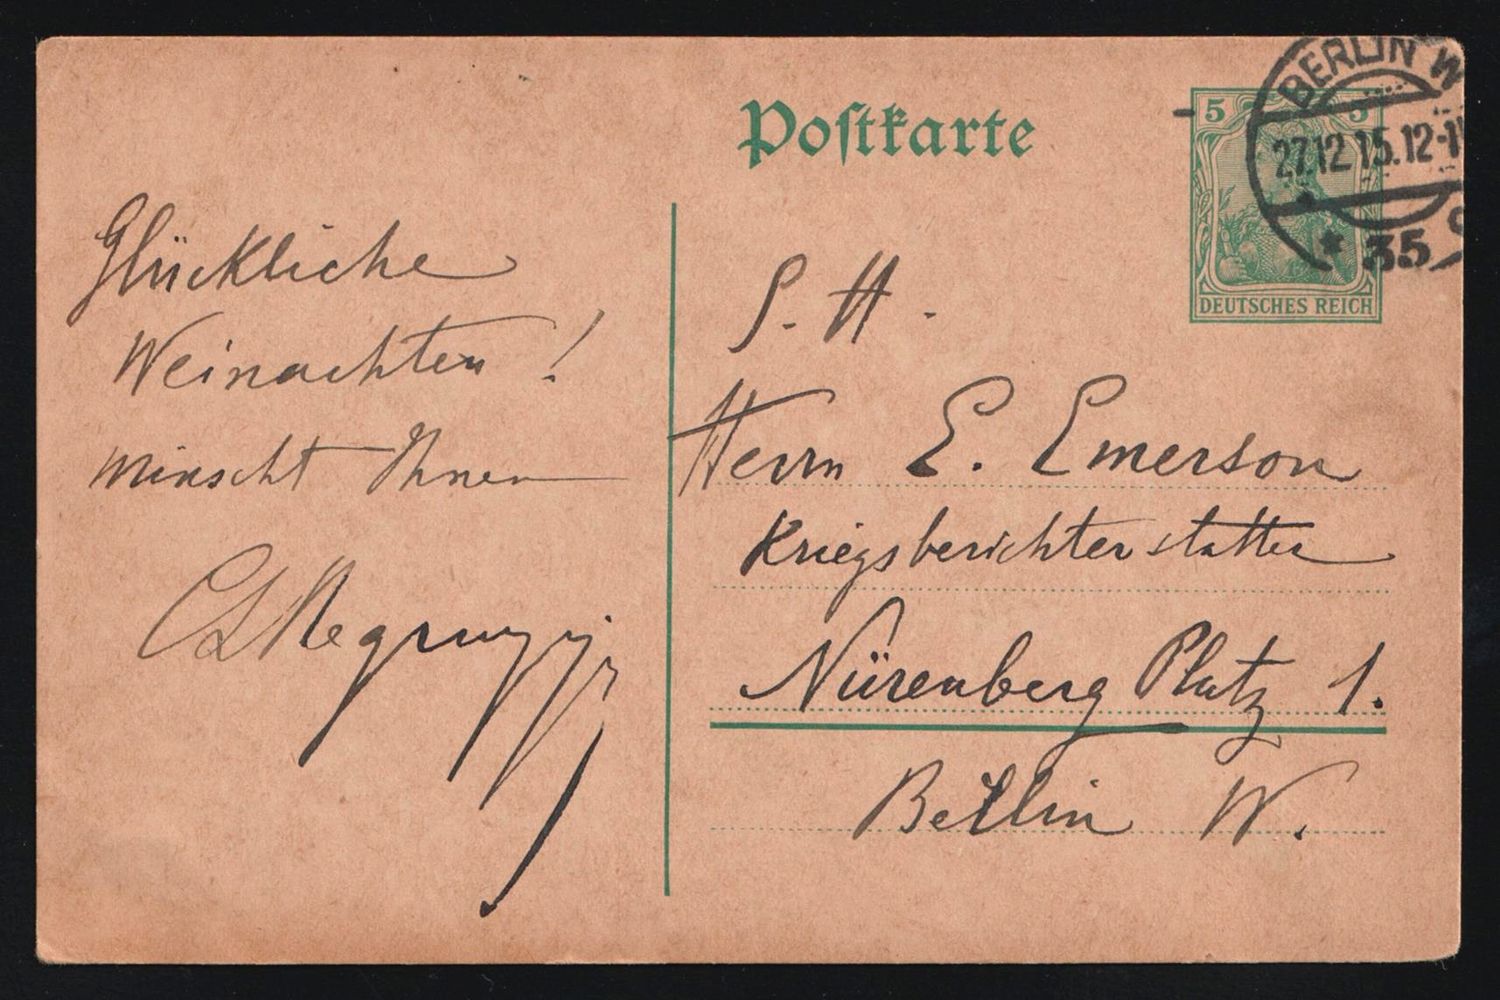 Postkarte
5 5
DEUTSCHES REICH
BERLIN W
27.12.15.12-1
* 35
Glückliche
Weinachten!
winscht Ihnen
S. H.
Herrn E. Emerson
Kriegsberichterstatter
Nürenberg Platz 1.
Berlin W.